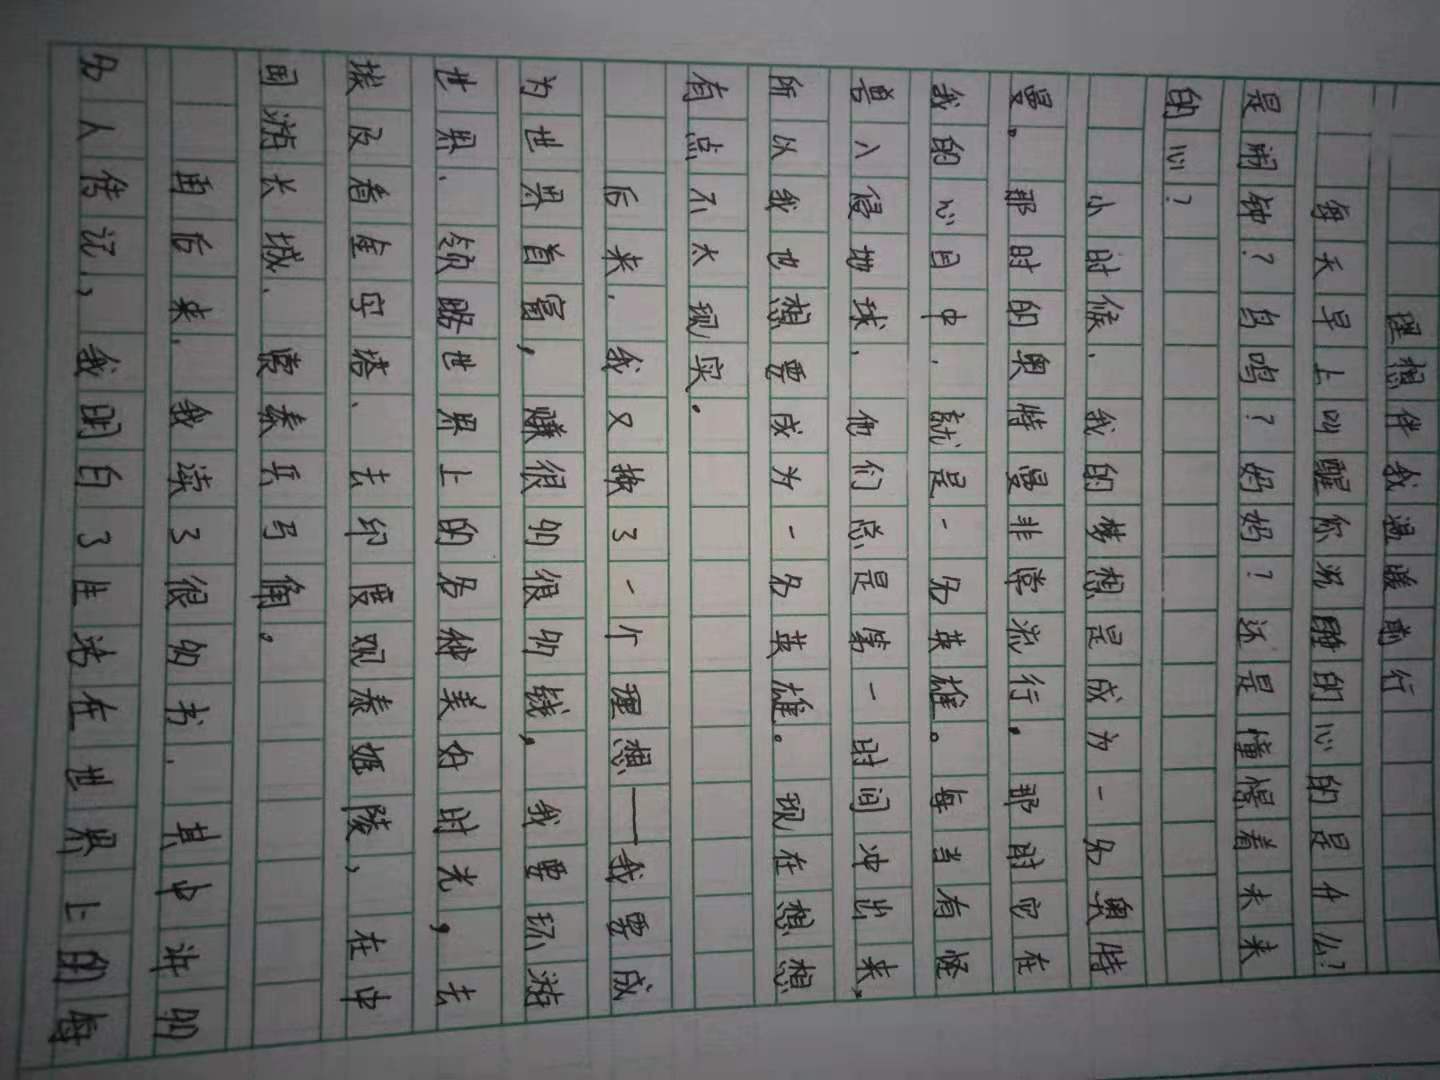 理想伴我温暖前行
每天早上叫醒你沉睡的心的是什么？
是闹钟？鸟鸣？妈妈？还是憧憬着未来
的心？
小时候，我的梦想是成为一名奥特
曼。那时的奥特曼非常流行，那时它在
我的心目中，就是一名英雄。每当有怪
兽入侵地球，他们总是第一时间冲出来，
所以我也想要成为一名英雄。现在想想
有点不太现实。
后来，我又换了一个理想——我要成
为世界首富，赚很多很多钱，我要环游
世界，领略世界上的各种美好时光，去
埃及看金字塔、去印度观泰姬陵，在中
国游长城、赏秦兵马俑。
再后来，我读了很多书，其中许多
名人传记，我明白了生活在世界上的每